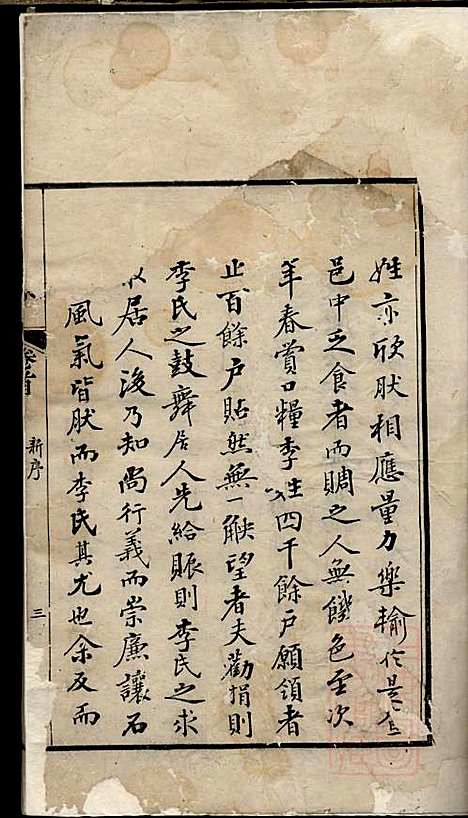 姓亦欣肰相應量力樂輸於是全
邑中乏食者而賙之人無饑色至次
年春賞口糧李姓四千餘戶願領者
止百餘戶貼然無一觖望者夫勸捐則
李氏之鼓舞居人先給賑則李氏之求
以居人後乃知尚行義而崇廉讓石
風氣皆肰而李氏其尤也余反而
卷首
新序
三